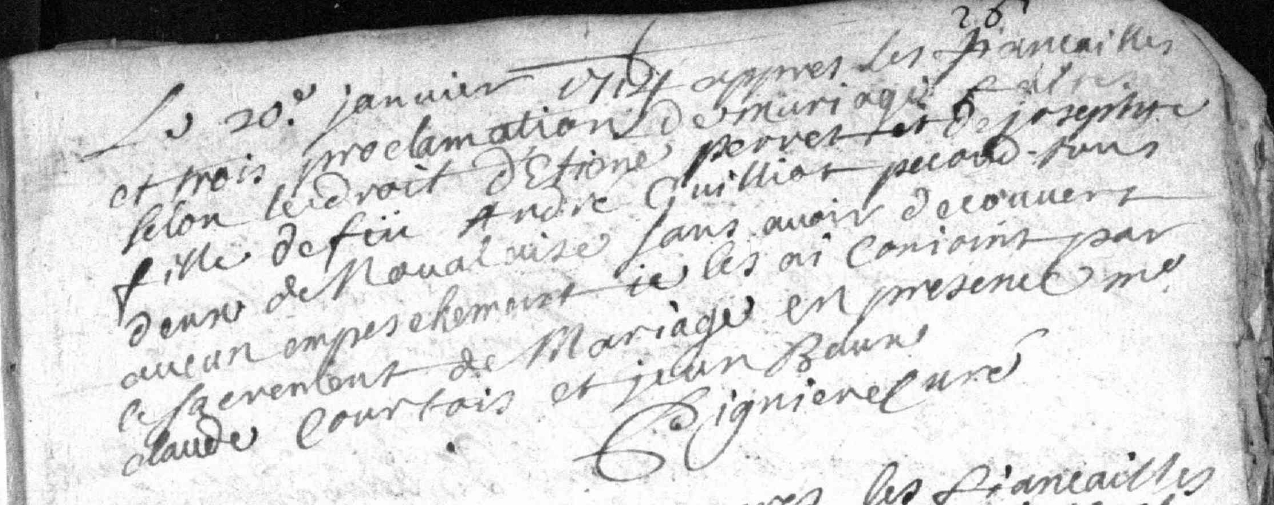 26
Le 20.e janvier 1714 appres les fiancailles
et trois proclamation de mariage faites
selon le droit d'Etiene perret et de josephte
fille de feu André Guilliot pecoud tous
deux de Novalaise sans avoir decouvert
aucun empeschement ie les ai conioint par
le sacrement de Mariage en presence me
claude Courtois et jean Beaux
Cure
les fiancailles